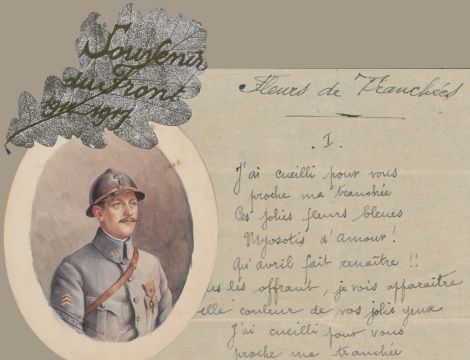 Souvenir
du Front
1914-1917
Fleurs de Tranchées
I.
J'ai cueilli pour vous
proche ma tranchée
Ces jolies fleurs bleues
Myosotis d'Amour !
Qu'avril fait renaître !!
les offrant, je vois apparaître
couleur de vos jolis yeux
J'ai cueilli pour vous
proche ma tranchée